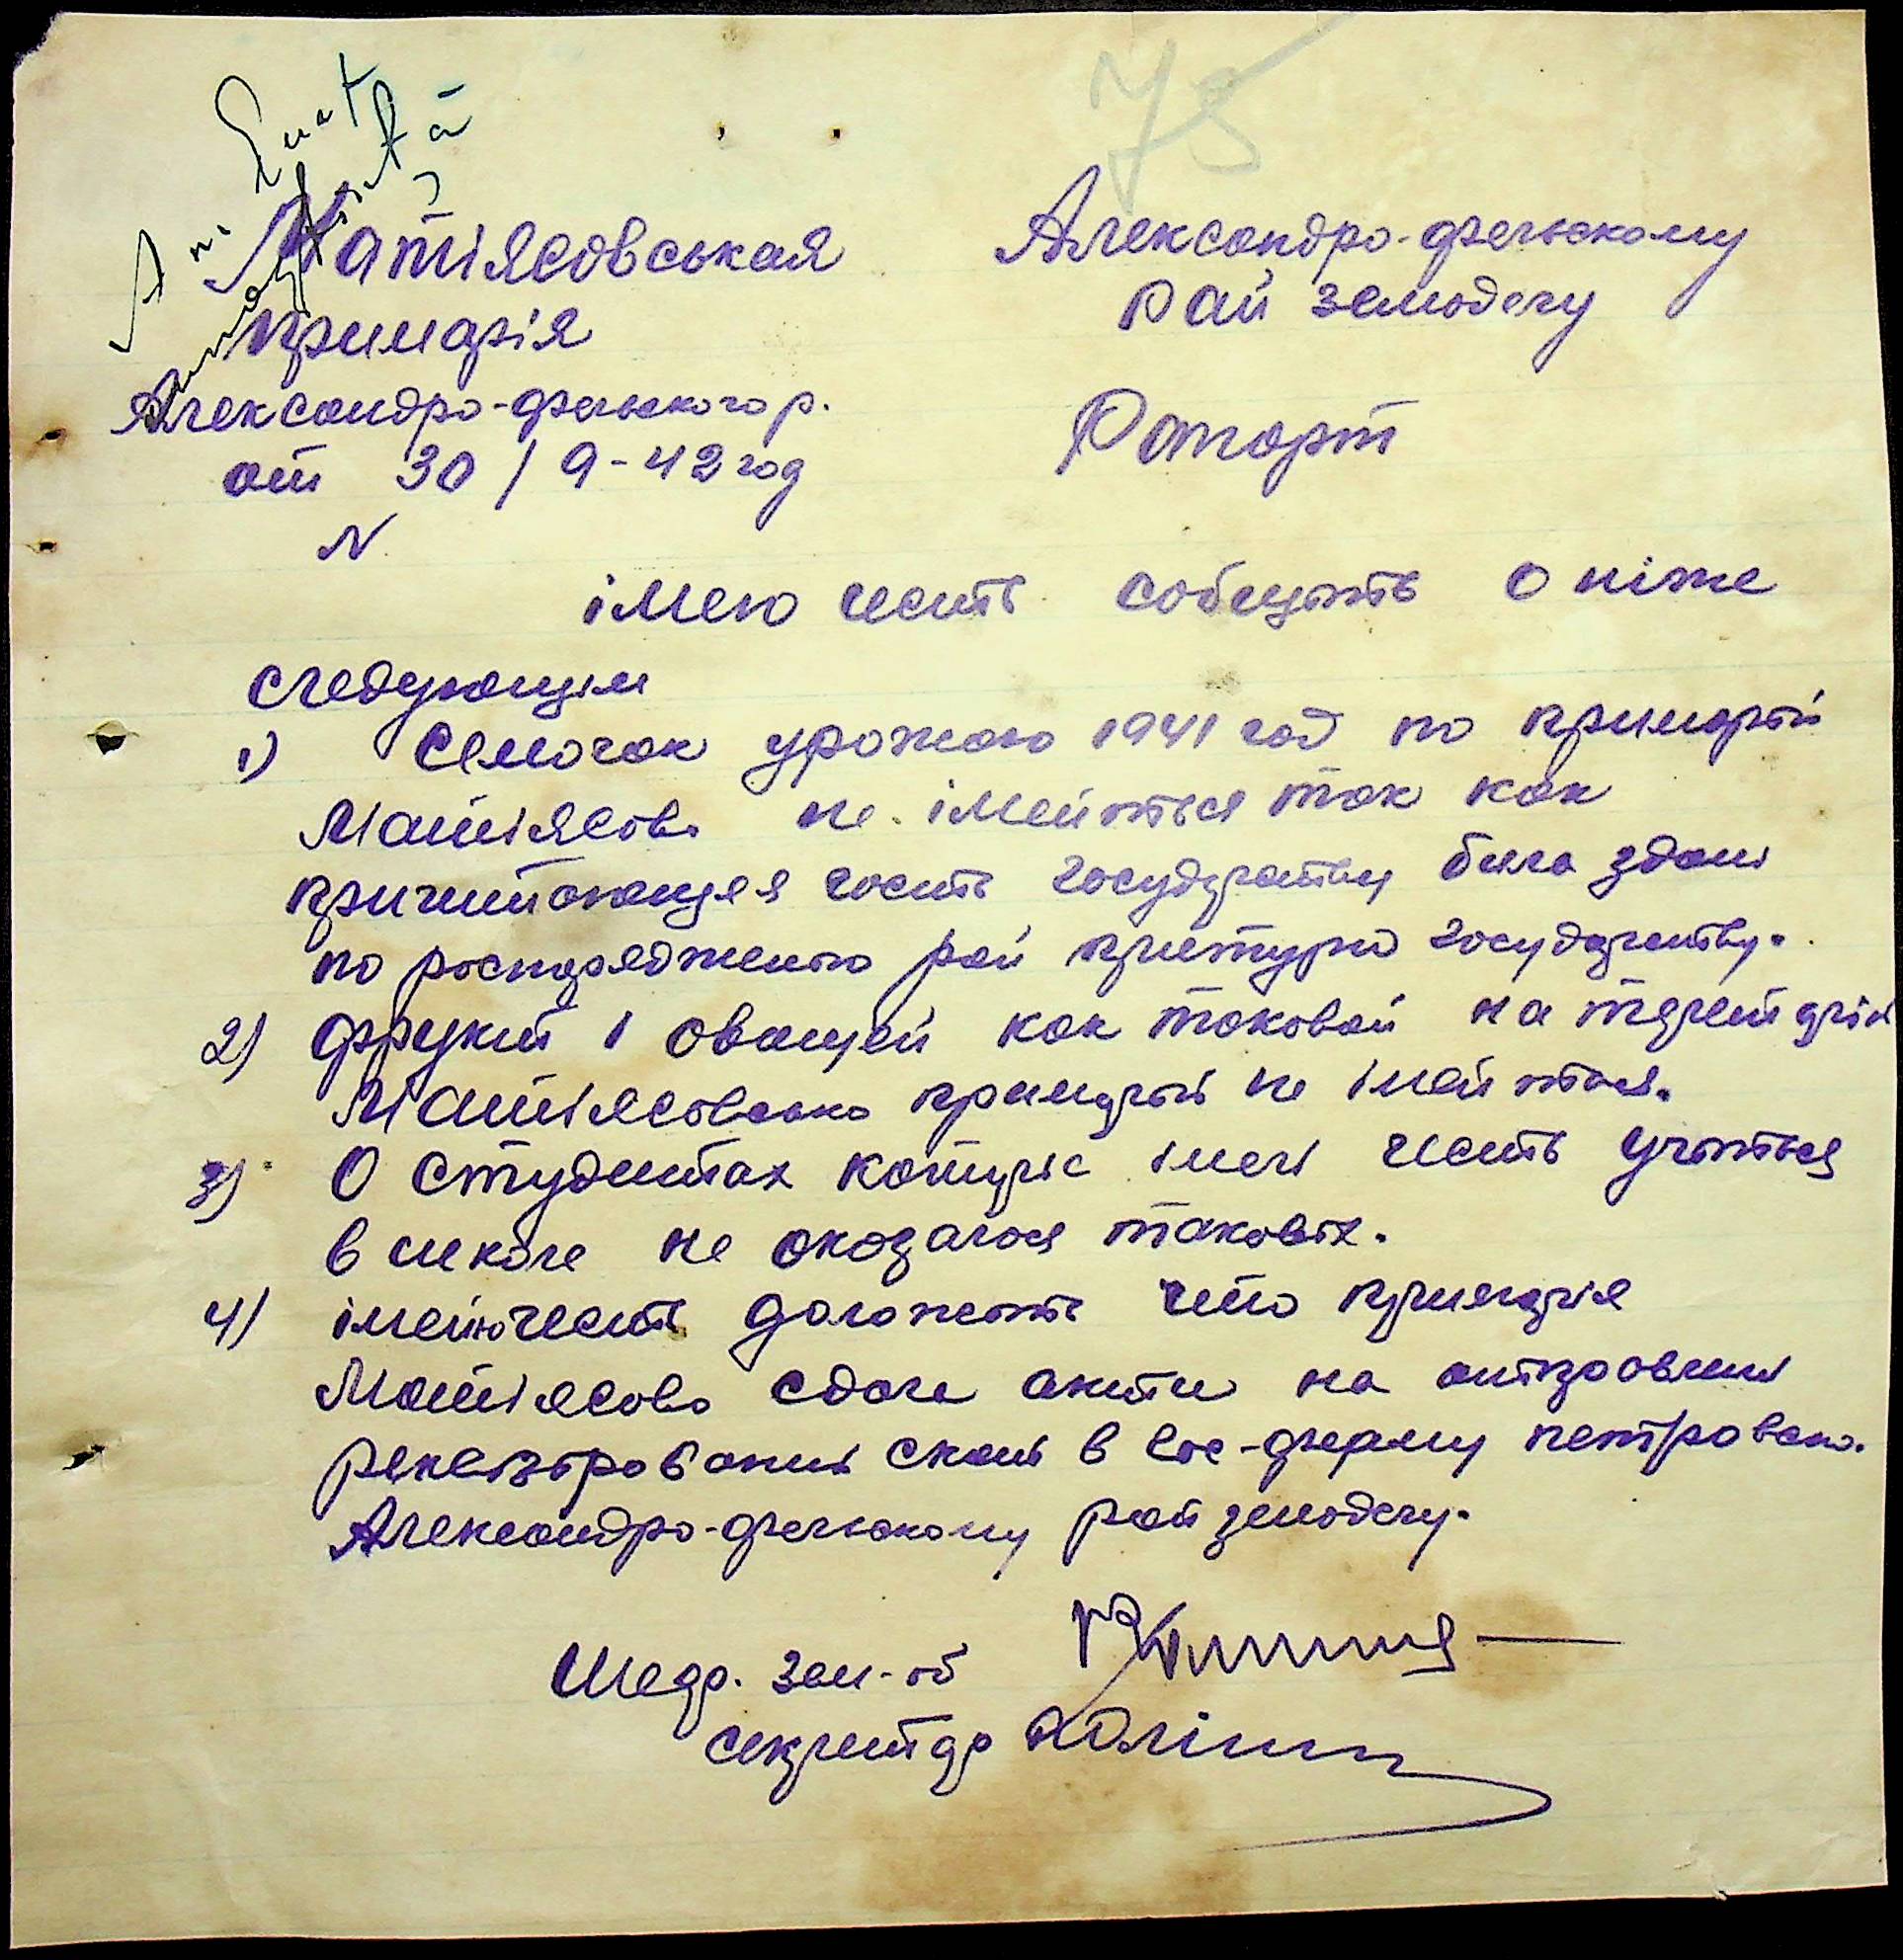 75
Матіясовськая
Александро-фельскому
примарія
рай земоделу
Александро-фельского р.
Рапорт
от 30/9-42 год
N
імею честь собщить о ніже
следующим
1) Семочак урожаю 1941 год по примарии
Матіясово не імеится так как
причитающяя часть государству была здани
по роспоряджению рай притури государству.
2) фрукт і овощей как таковой на теретарія
Матіясовско примарій не імеится.
3) О студентах которіє імелі честь учиться
в школе не оказалося таковіх.
4) імеючесть даложить что примарія
Матіясово сдала акти на
реквізірованія скоті в Гос-ферму петровско.
Александро-фельскому рай земоделу.
Шеф. Зем-об
секретар